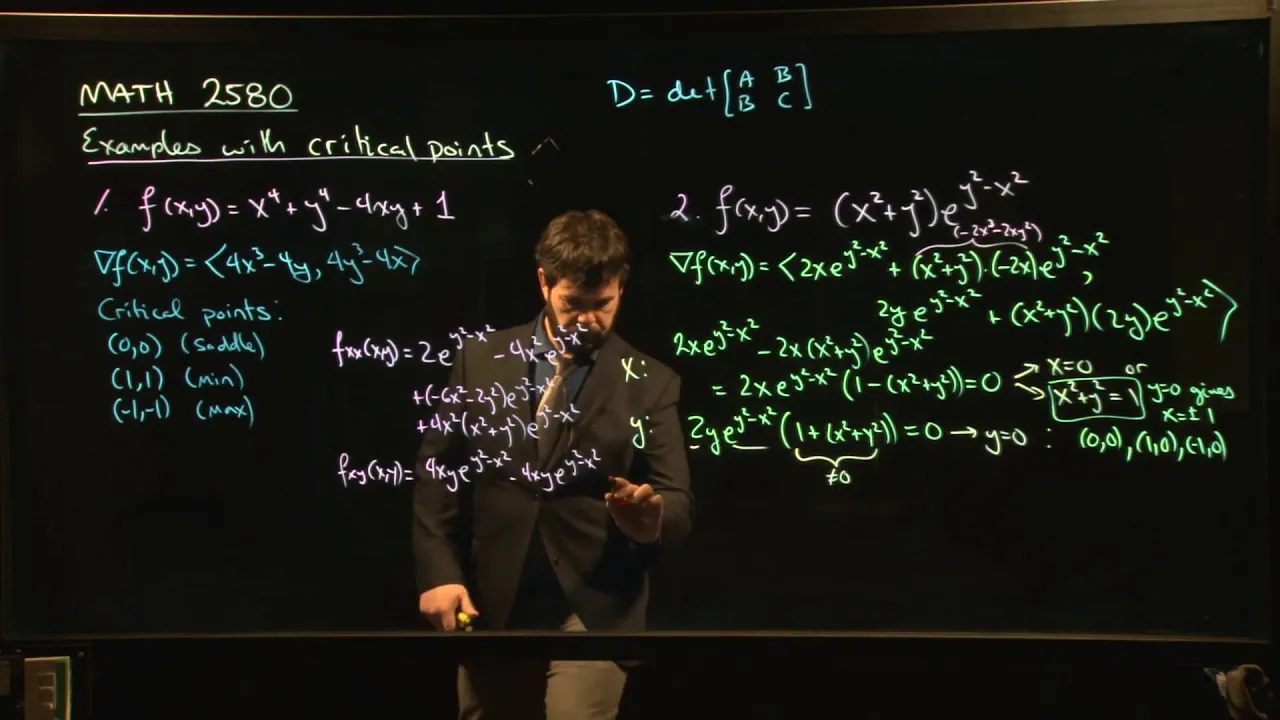 MATH 2580
D = det [A B
B C]
Examples with critical points
1. f(x,y) = x⁴ + y⁴ - 4xy + 1
∇f(x,y) = ⟨4x³-4y, 4y³-4x⟩
Critical points:
(0,0) (saddle)
(1,1) (min)
(-1,-1) (max)
fxx(x,y) = 2e^{y²-x²} - 4x²e^{y²-x²}
+(-6x²-2y²)e^{y²-x²}
+4x²(x²+y²)e^{y²-x²}
fxy(x,y) = 4xye^{y²-x²} - 4xye^{y²-x²}
2. f(x,y) = (x²+y²)e^{y²-x²}
(-2x³-2xy²)
∇f(x,y) = ⟨2xe^{y²-x²} + (x²+y²)·(-2x)e^{y²-x²},
2ye^{y²-x²} + (x²+y²)(2y)e^{y²-x²}⟩
x: 2xe^{y²-x²} - 2x(x²+y²)e^{y²-x²}
= 2xe^{y²-x²}(1-(x²+y²)) = 0 → x=0 or
→ x²+y²=1 y=0 gives
x=±1
y: 2ye^{y²-x²}(1+(x²+y²)) = 0 → y=0 : (0,0), (1,0), (-1,0)
≠0